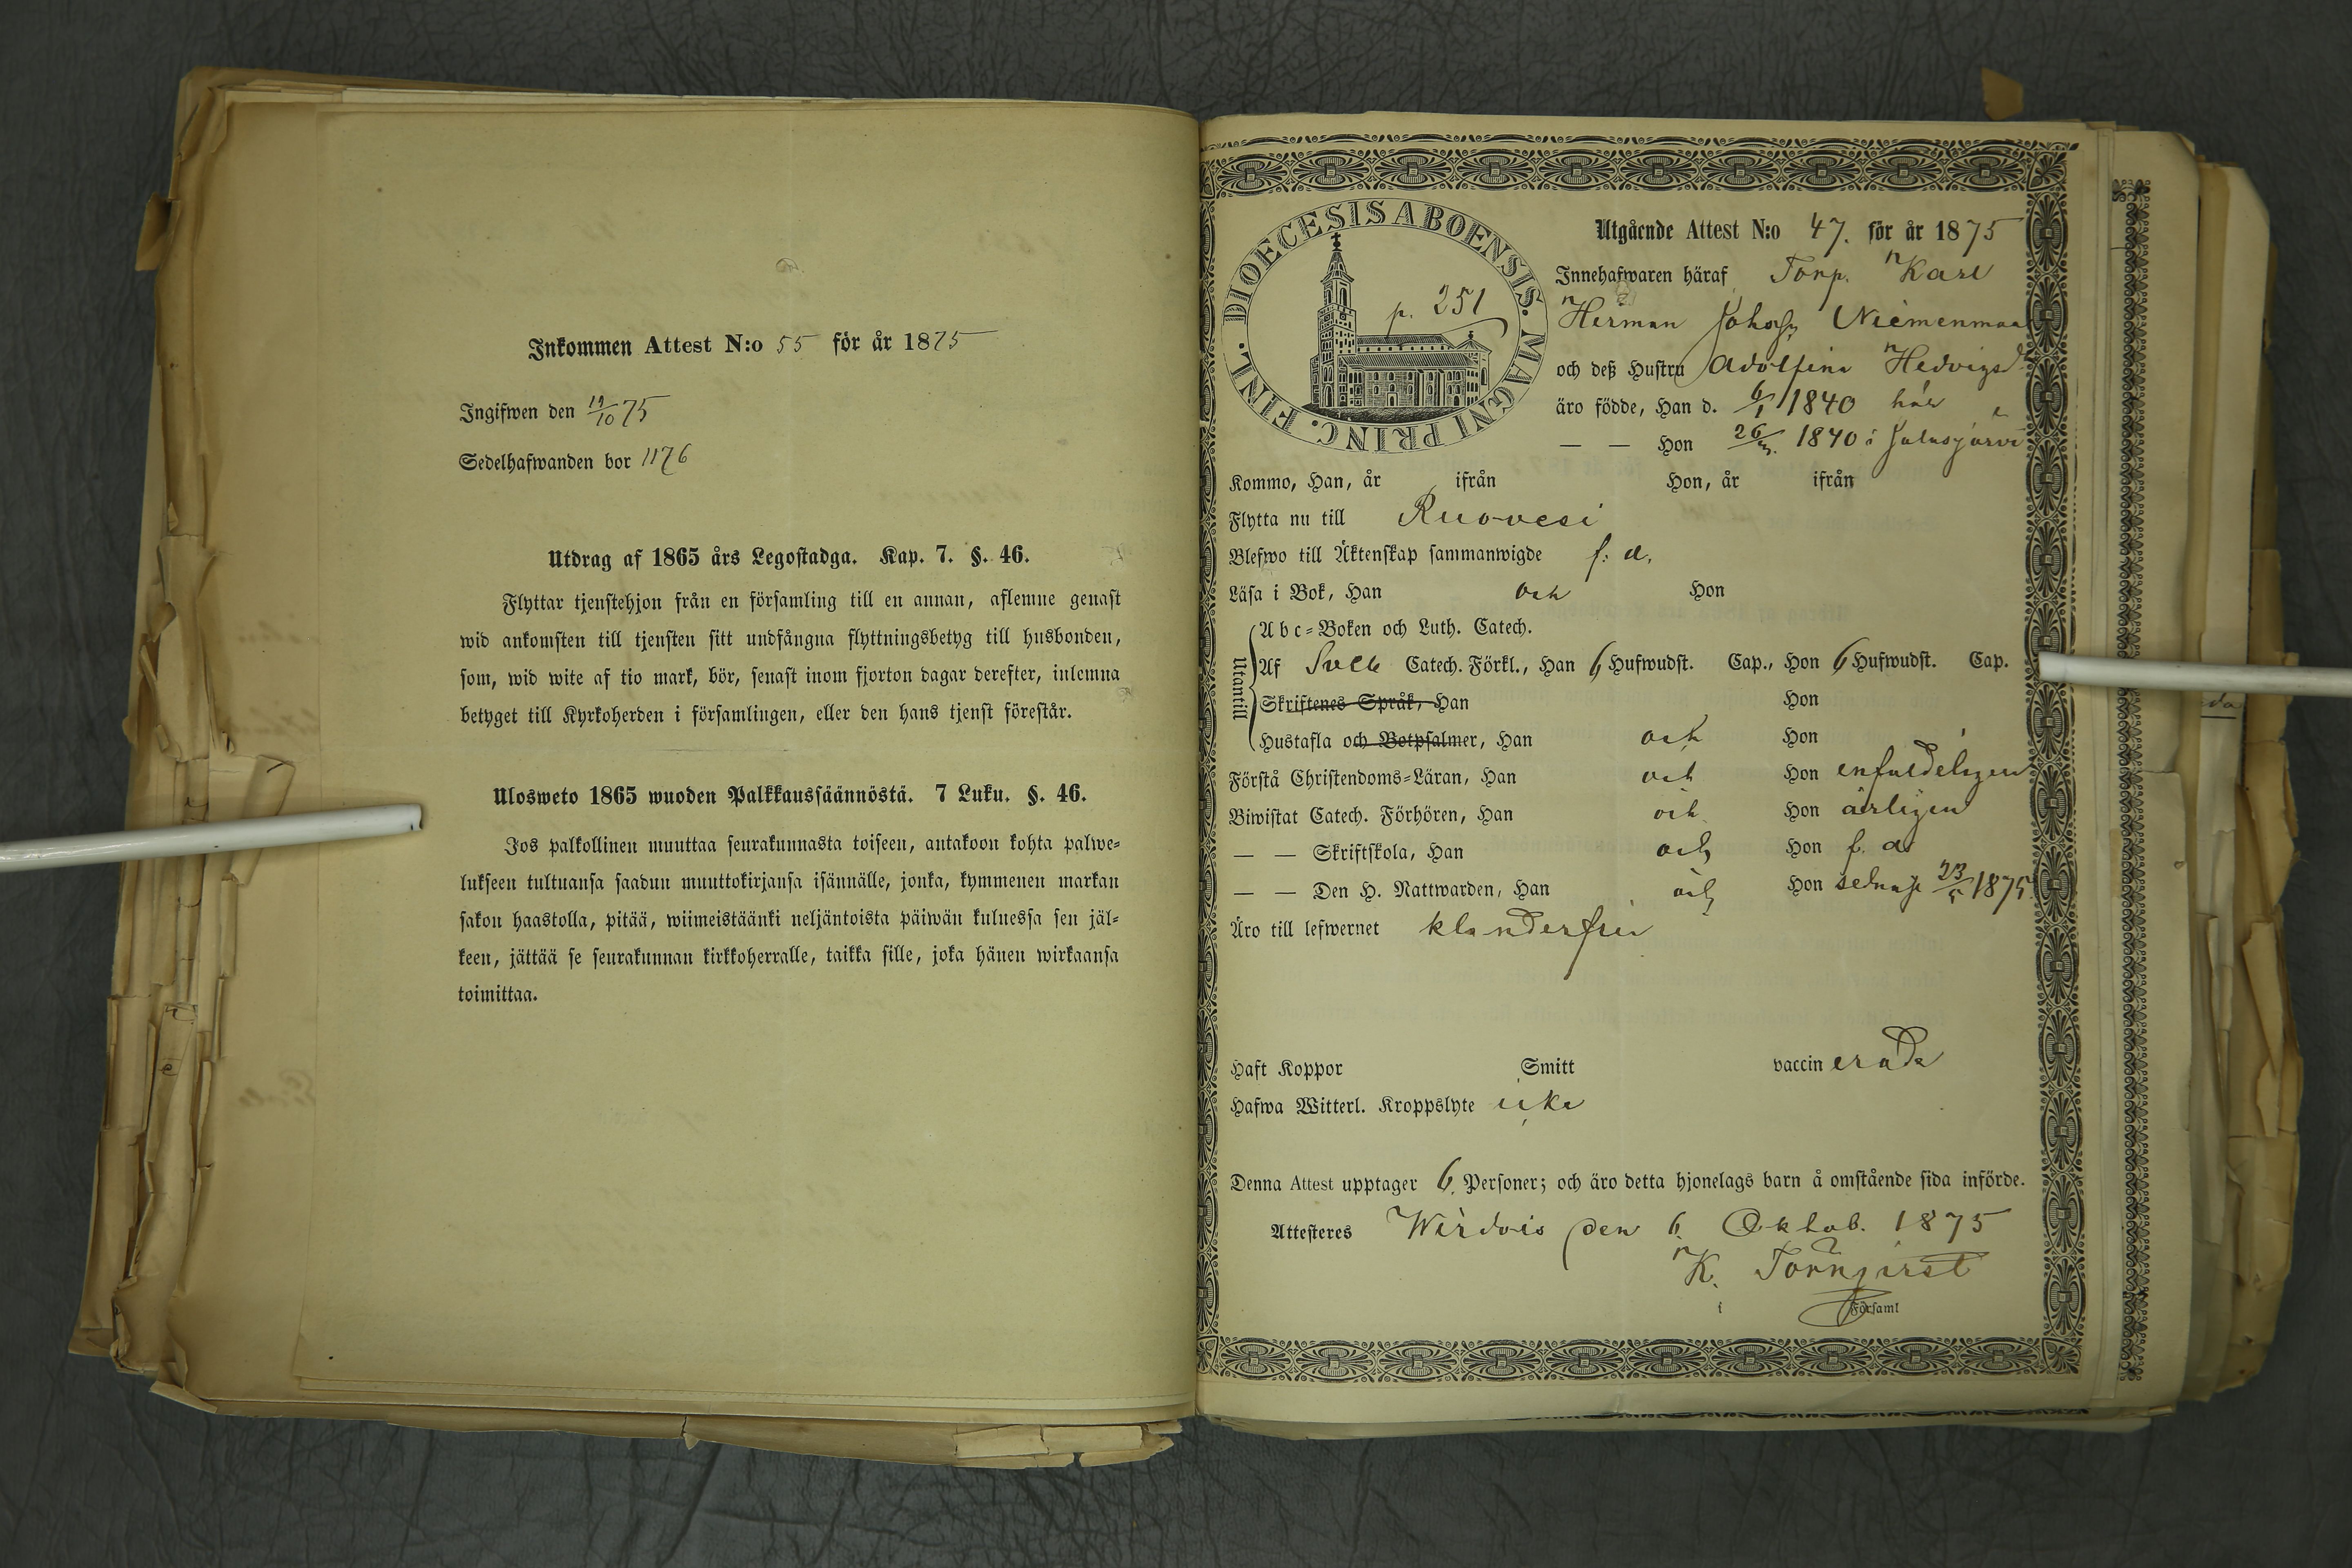 Inkommen Attest N:o 55 för år 1875
Ingifwen den 19/10 75
Sedelhafwanden bor 1176
Utdrag af 1865 års Legostadga. Kap. 7. §. 46.
Flyttar tjenstehjon från en församling till en annan, aflemne genast
wid ankomsten till tjensten sitt undfångna flyttningsbetyg till husbonden,
som, wid wite af tio mark, bör, senast inom fjorton dagar derefter, inlemna
betyget till Kyrkoherden i församlingen, eller den hans tjenst förestår.
Ulosweto 1865 wuoden Palkkaussäännöstä. 7 Luku. §. 46.
Jos palkollinen muuttaa seurakunnasta toiseen, antakoon kohta palwe-
lukseen tultuansa saadun muuttokirjansa isännälle, jonka, kymmenen markan
sakon haastolla, pitää, wiimeistäänki neljäntoista päiwän kuluessa sen jäl-
keen, jättää se seurakunnan kirkkoherralle, taikka sille, joka hänen wirkaansa
toimittaa.
DIOECESIS ABOENSIS. MAGNI PRINC. FINL.
p. 251
Utgående Attest N:o 47. för år 1875
Innehafwaren häraf Torp. Karl
Herman Niemenmaa
och deß Hustru Adolfina Hedvigsd:r
äro födde, Han d. 6/1 1840 här
— — Hon 1840 i Jalasjärvi
Kommo, Han, år ifrån Hon, år ifrån
Flytta nu till Ruovesi
Blefwo till Äktenskap sammanwigde f. d.
Läsa i Bok, Han och Hon
Utantill
Abc-Boken och Luth. Catech.
Af Sveb Catech. Förkl., Han 6 Hufwudst. Cap., Hon 6 Hufwudst. Cap.
Skriftenes Språk, Han Hon
Hustafla och Botpsalmer, Han och Hon
Förstå Christendoms-Läran, Han och Hon enfaldeligen
Biwistat Catech. Förhören, Han och Hon årligen
— — Skriftskola, Han och Hon f. d.
— — Den H. Nattwarden, Han och Hon senast 23/5 1875
Äro till lefwernet klanderfria
Haft Koppor Smitt vaccinerade
Hafwa Witterl. Kroppslyte icke
Denna Attest upptager 6. Personer; och äro detta hjonelags barn å omstående sida införde.
Attesteres Wirdois den 6 Oktob. 1875
K. Törnqvist
i Församl